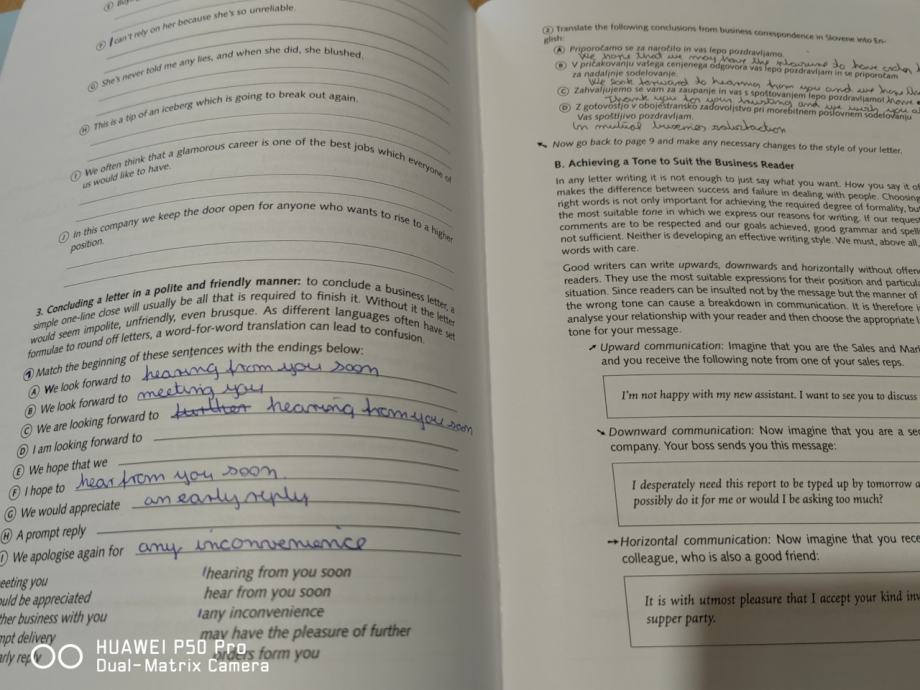 I can't rely on her because she's so unreliable.
G She's never told me any lies, and when she did, she blushed.
H This is a tip of an iceberg which is going to break out again.
I We often think that a glamorous career is one of the best jobs which everyone of
us would like to have.
J In this company we keep the door open for anyone who wants to rise to a higher
position.
3. Concluding a letter in a polite and friendly manner: to conclude a business letter, a
simple one-line close will usually be all that is required to finish it. Without it the letter
would seem impolite, unfriendly, even brusque. As different languages often have set
formulae to round off letters, a word-for-word translation can lead to confusion.
1 Match the beginning of these sentences with the endings below:
A We look forward to hearing from you soon
B We look forward to meeting you
C We are looking forward to further hearing from you soon
D I am looking forward to
E We hope that we
F I hope to hear from you soon
G We would appreciate an early reply
H A prompt reply
I We apologise again for any inconvenience
eeting you
uld be appreciated
her business with you
mpt delivery
arly reply
hearing from you soon
hear from you soon
any inconvenience
may have the pleasure of further
orders form you
HUAWEI P50 Pro
Dual-Matrix Camera
2 Translate the following conclusions from business correspondence in Slovene into En-
glish:
A Priporočamo se za naročilo in vas lepo pozdravljamo.
We hope that we may have the pleasure to have
B V pričakovanju vašega cenjenega odgovora vas lepo pozdravljam in se priporočam
za nadaljnje sodelovanje.
We look forward to hearing from you and we hope
C Zahvaljujemo se vam za zaupanje in vas s spoštovanjem lepo pozdravljamo!
Thank you for your and we wish you
D Z gotovostjo v obojestransko zadovoljstvo pri morebitnem poslovnem sodelovanju
Vas spoštljivo pozdravljam.
In mutual business satisfaction
Now go back to page 9 and make any necessary changes to the style of your letter.
B. Achieving a Tone to Suit the Business Reader
In any letter writing it is not enough to just say what you want. How you say it of
makes the difference between success and failure in dealing with people. Choosing
right words is not only important for achieving the required degree of formality, but
the most suitable tone in which we express our reasons for writing. If our request
comments are to be respected and our goals achieved, good grammar and spell
not sufficient. Neither is developing an effective writing style. We must, above all,
words with care.
Good writers can write upwards, downwards and horizontally without offen
readers. They use the most suitable expressions for their position and particula
situation. Since readers can be insulted not by the message but the manner of
the wrong tone can cause a breakdown in communication. It is therefore i
analyse your relationship with your reader and then choose the appropriate l
tone for your message.
Upward communication: Imagine that you are the Sales and Mar
and you receive the following note from one of your sales reps.
I'm not happy with my new assistant. I want to see you to discuss
Downward communication: Now imagine that you are a se
company. Your boss sends you this message:
I desperately need this report to be typed up by tomorrow a
possibly do it for me or would I be asking too much?
Horizontal communication: Now imagine that you rece
colleague, who is also a good friend:
It is with utmost pleasure that I accept your kind inv
supper party.